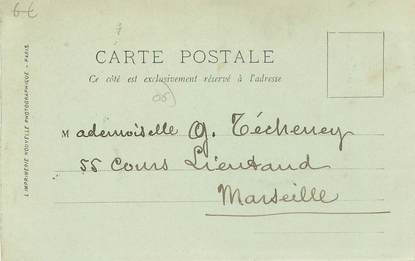 6€
CARTE POSTALE
Ce côté est exclusivement réservé à l'adresse
(05)
Mademoiselle G. Técheney
55 Cours Lieutaud
Marseille
L'IMPRIMERIE NOUVELLE PHOTOGRAPHIQUE - PARIS.